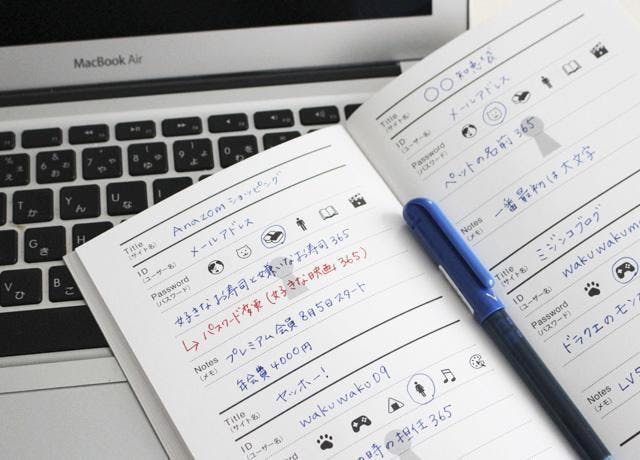 MacBook Air
Title
(サイト名)
Anazom ショッピング
ID
(ユーザー名)
メールアドレス
Password
(パスワード)
好きなお寿司と嫌いなお寿司365
↳パスワード変更(好きな映画365)
Notes
(メモ)
プレミアム会員 8月5日スタート
年会費4000円
Title
(サイト名)
ヤッホー!
ID
(ユーザー名)
wakuwako09
Password
(パスワード)
時の担任365
Title
(サイト名)
〇〇知恵袋
ID
(ユーザー名)
メールアドレス
Password
(パスワード)
ペットの名前365
Notes
(メモ)
一番最初は大文字
Title
(サイト名)
ミジンコブログ
ID
(ユーザー名)
wakuwakum
Password
(パスワード)
ドラクエのモン
Notes
(メモ)
LV5